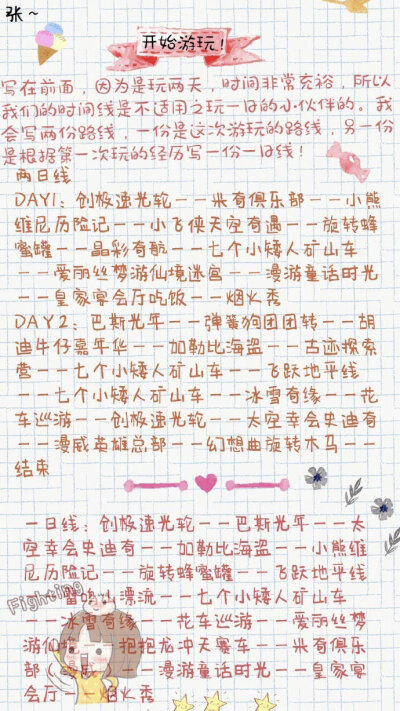 张~
开始游玩！
写在前面，因为是玩两天，时间非常充裕，所以
我们的时间线是不适用之玩一日的小伙伴的。我
会写两份路线，一份是这次游玩的路线，另一份
是根据第一次玩的经历写一份一日线！
两日线
DAY1：创极速光轮——米奇俱乐部——小熊
维尼历险记——小飞侠天空奇遇——旋转蜂
蜜罐——晶彩奇航——七个小矮人矿山车
——爱丽丝梦游仙境迷宫——漫游童话时光
——皇家宴会厅吃饭——烟火秀
DAY2：巴斯光年——弹簧狗团团转——胡
迪牛仔嘉年华——加勒比海盗——古迹探索
营——七个小矮人矿山车——飞跃地平线
——七个小矮人矿山车——冰雪奇缘——花
车巡游——创极速光轮——太空幸会史迪奇
——漫威英雄总部——幻想曲旋转木马——
结束
一日线：创极速光轮——巴斯光年——太
空幸会史迪奇——加勒比海盗——小熊维
尼历险记——旋转蜂蜜罐——飞跃地平线
雷鸣山漂流——七个小矮人矿山车
——冰雪奇缘——花车巡游——爱丽丝梦
游仙境——抱抱龙冲天赛车——米奇俱乐
部（漫威）——漫游童话时光——皇家宴
会厅——烟火秀
Fighting